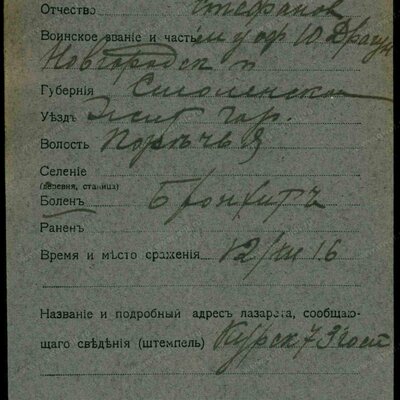 Отчество Стефанов
Воинское званіе и часть мл у оф 10 Драгун
Новгородск п
Губернія Смоленская
Уѣздъ гор.
Волость Порѣчье
Селеніе
(деревня, станица)
Боленъ Бронхитъ
Раненъ
Время и мѣсто сраженія 12/III 16
Названіе и подробный адресъ лазарета, сообщаю-
щаго свѣдѣнія (штемпель) Курск 73 госп